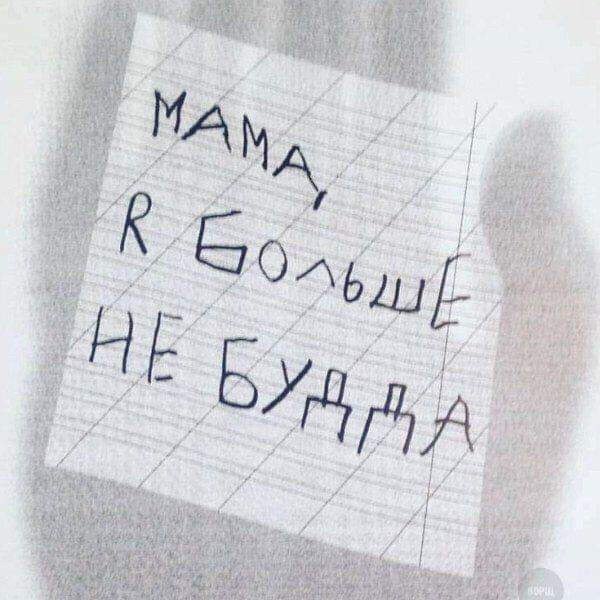 МАМА,
R БОЛЬШЕ
НЕ БУДДА
БОРЩ